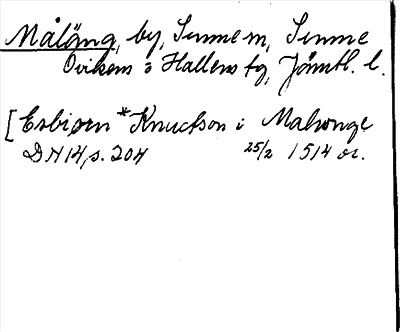 Målång, by, Sunne sn, Sunne
Ovikens o Hallens tg, Jämtl. l.
[Esbiørn *Knuctson i Malwnge
DN 14, s. 204 25/2 1514 or.